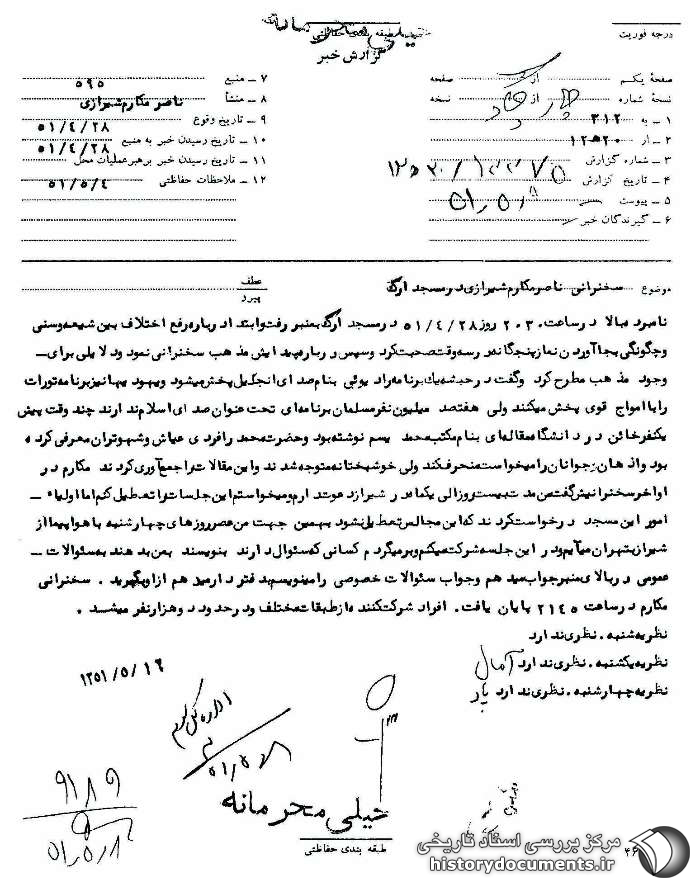 درجه فوریت
طبقه بندی حفاظتی
گزارش خبر
صفحه یکم از صفحه
نسخه شماره از نسخه
۱ ـ به ۳۱۲
۲ ـ از ۲۰ ه‍ ۱۲
۳ ـ شماره گزارش
۴ ـ تاریخ گزارش
۵ ـ پیوست
۶ ـ گیرندگان خبر
۷ ـ منبع ۵۹۵
۸ ـ منشأ ناصر مکارم شیرازی
۹ ـ تاریخ وقوع ۵۱/۴/۲۸
۱۰ ـ تاریخ رسیدن خبر به منبع ۵۱/۴/۲۸
۱۱ ـ تاریخ رسیدن خبر برهبر عملیات محل
۱۲ ـ ملاحظات حفاظتی ۵۱/۵/۴
موضوع سخنرانی ناصر مکارم شیرازی در مسجد ارک
عطف
پیرو
نامبرده بالا در ساعت ۲۰۳۰ روز ۵۱/۴/۲۸ در مسجد ارک بمنبر رفت و ابتدا درباره رفع اختلاف بین شیعه و سنی
و چگونگی بجا آوردن نماز پنجگانه در سه وقت صحبت کرد و سپس درباره پیدایش مذهب سخنرانی نمود و دلایلی برای ـ
وجود مذهب مطرح کرد و گفت در حبشه یک برنامه رادیوئی بنام صدای انجلیل پخش میشود و یهودیها نیز برنامه تورات
را با امواج قوی پخش میکنند ولی هفتصد میلیون نفر مسلمان برنامه‌ای تحت عنوان صدای اسلام ندارند چند وقت پیش
یکنفر خائن در دانشگاه مقاله‌ای بنام مکتب محمد یسم نوشته بود و حضرت محمد را فردی عیاش و شهوتران معرفی کرده
بود و اذهان جوانان را میخواست منحرف کند ولی خوشبختانه متوجه شدند و این مقالات را جمع آوری کردند مکارم در
اواخر سخنرانیش گفت من مدت بیست روز الی یکماه در شیراز دعوت دارم و میخواستم این جلسات را تعطیل کنم اما اولیاء ـ
امور این مسجد درخواست کردند که این مجالس تعطیل نشود بهمین جهت من عصر روزهای چهارشنبه با هواپیما از
شیراز بتهران میآیم و در این جلسه شرکت میکنم و برمیگردم کسانی که سئوال دارند بنویسند بمن بدهند به سئوالات ـ
عمومی در بالای منبر جواب میدهم و جواب سئوالات خصوصی را مینویسم بدفتر دار میدهم از او بگیرید . سخنرانی
مکارم در ساعت ۲۱۴۵ پایان یافت . افراد شرکت کننده از طبقات مختلف و در حدود دو هزار نفر میشد .
نظریه شنبه . نظری ندارد
نظریه یکشنبه . نظری ندارد آمال
نظریه چهارشنبه . نظری ندارد
۱۳۵۱/۵/۱۶
۹۱۸۹
خیلی محرمانه
طبقه بندی حفاظتی
مرکز بررسی اسناد تاریخی
historydocuments.ir